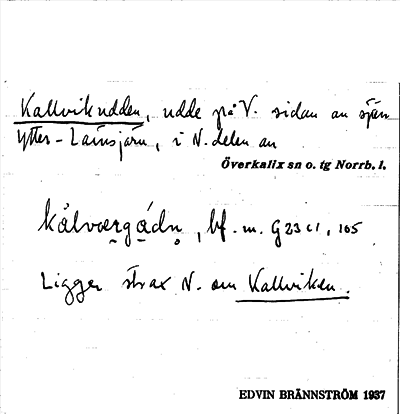 Kallvikudden, udde på V. sidan av sjön
Ytter-Lainsjärv, i N. delen av
Överkalix sn o. tg Norrb. l.
bf. m. G 23 c1, 105
Ligger strax N. om Kallviken.
EDVIN BRÄNNSTRÖM 1937